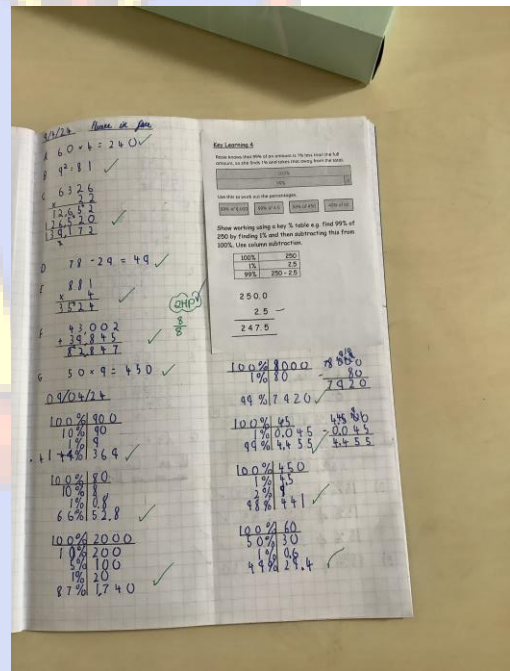 9/4/24
A 60 × 4 = 240 ✓
B 9² = 81 ✓
C 6326
× 22
12,652
126,520
139,172 ✓
D 78 - 29 = 49 ✓
E 881
× 4
3524 ✓
F 43,002
+ 39,845
82,847 ✓
G 50 × 9 = 450 ✓
2HP
8
8
09/04/24
100% 900
10% 90
1% 9
41% 369 ✓
100% 80
10% 8
1% 0.8
66% 52.8 ✓
100% 2000
10% 200
5% 100
1% 20
87% 1,740 ✓
Key Learning 4
Rosie knows that 99% of an amount is 1% less than the full
amount, so she finds 1% and takes this away from the total.
100%
99%
Use this to work out the percentages.
99% of 8,000
Show working using a key % table e.g. find 99% of
250 by finding 1% and then subtracting this from
100%. Use column subtraction.
100% 250
1% 2.5
99% 250 - 2.5
250.0
2.5 -
247.5
100% 8000
1% 80
99% 7920 ✓
- 80
7920
100% 45
1% 0.045
99% 4.455 ✓
- 0.045
4.455
100% 450
1% 4.5
2% 9
98% 441 ✓
100% 60
50% 30
1% 0.6
49% 29.4 ✓